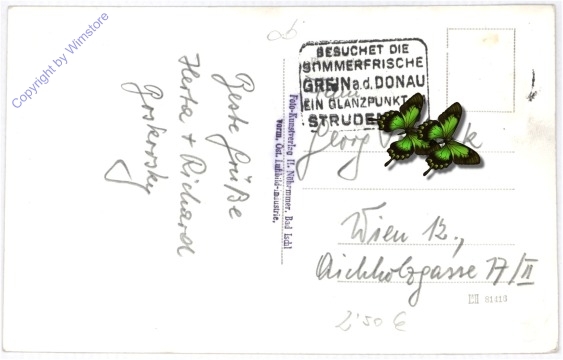 Copyright by Wimstore
Beste Grüße
Herta + Richard
Foto-Kunstverlag H. Nöhrmner, Bad Ischl
vorm. Öst. Luftbild-Industrie.
BESUCHET DIE
SOMMERFRISCHE
GREIN a.d. DONAU
EIN GLANZPUNKT
Georg
Wien 12.,
Aichholzgasse 17/II
81416
2'50 €